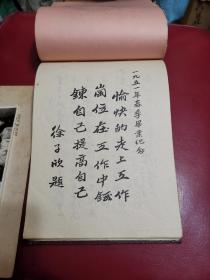 一九五一年春季畢業纪念
愉快的走上工作
崗位在工作中鍛
鍊自己提高自己
徐子欣題